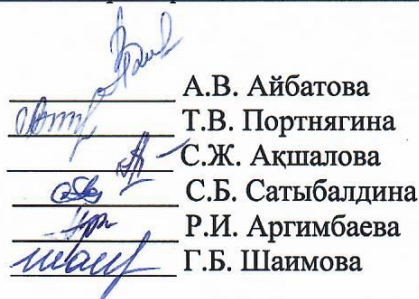 А.В. Айбатова
Т.В. Портнягина
С.Ж. Ақшалова
С.Б. Сатыбалдина
Р.И. Аргимбаева
Г.Б. Шаимова